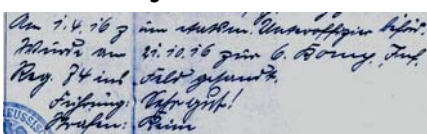 Am 1.4.16 z. um etatsm. Unteroffizier beförd.
Wurde am 21.10.16 zur 6. Komp. Inf.
Reg. 74 ins Feld gesandt.
Führung: Sehr gut!
Strafen: Keine